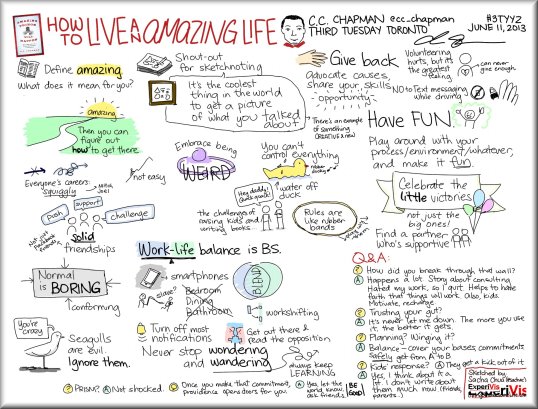 HOW TO LIVE AN AMAZING LIFE
C.C. CHAPMAN @cc_chapman
THIRD TUESDAY TORONTO
#3TYYZ
JUNE 11, 2013
Define amazing.
What does it mean for you?
amazing
Then you can
figure out
how to get there.
Shout-out
for sketchnoting
It's the coolest
thing in the world
to get a picture
of what you talked
about.
Give back
Advocate causes,
share your skills
opportunity
There's an example of
something
CREATIVE & new
Volunteering
hurts, but it's
the greatest
feeling
can never
give enough.
NO to Text messaging
while driving
Have FUN.
Play around with your
process/environment/whatever,
and make it fun
Celebrate the
little victories
not just the
big ones!
Find a partner
who's supportive
Everyone's careers:
squiggly
not easy
push
support
challenge
solid
friendships
Embrace being
WEIRD
You can't
control everything
water off
duck
Hey daddy!
the challenges of
raising kids and
writing books
Rules are
like rubber
bands
Normal
is
BORING
conforming
You're
crazy!
Seagulls
are evil.
Ignore them.
Work-life balance is BS.
smartphones
BLEND
Bedroom
Dining
Bathroom
workshifting
Turn off most
notifications
Get out there &
read the opposition
Never stop wondering
and wandering
always keep
LEARNING
Q&A:
Q How did you break through that wall?
A Happens a lot. Story about consulting
Hated my work, so I quit. Helps to have
faith that things will work. Also, kids
Motivate, recharge
Q Trusting your gut?
A It's never let me down. The more you use
it, the better it gets.
Q Planning? Winging it?
A Balance - cover your bases, commitments.
Safely get from A to B
Q Kids' response? A They get a kick out of it
A Yes, I think about it a
lot. I don't write about
them much now (friends,
parents)
Q PRISM? A Not shocked.
Once you make that commitment,
providence opens doors for you
A Yes, let the
ask friends.
BE
Good!
Sketched by
Sacha Chua
ExperiVis